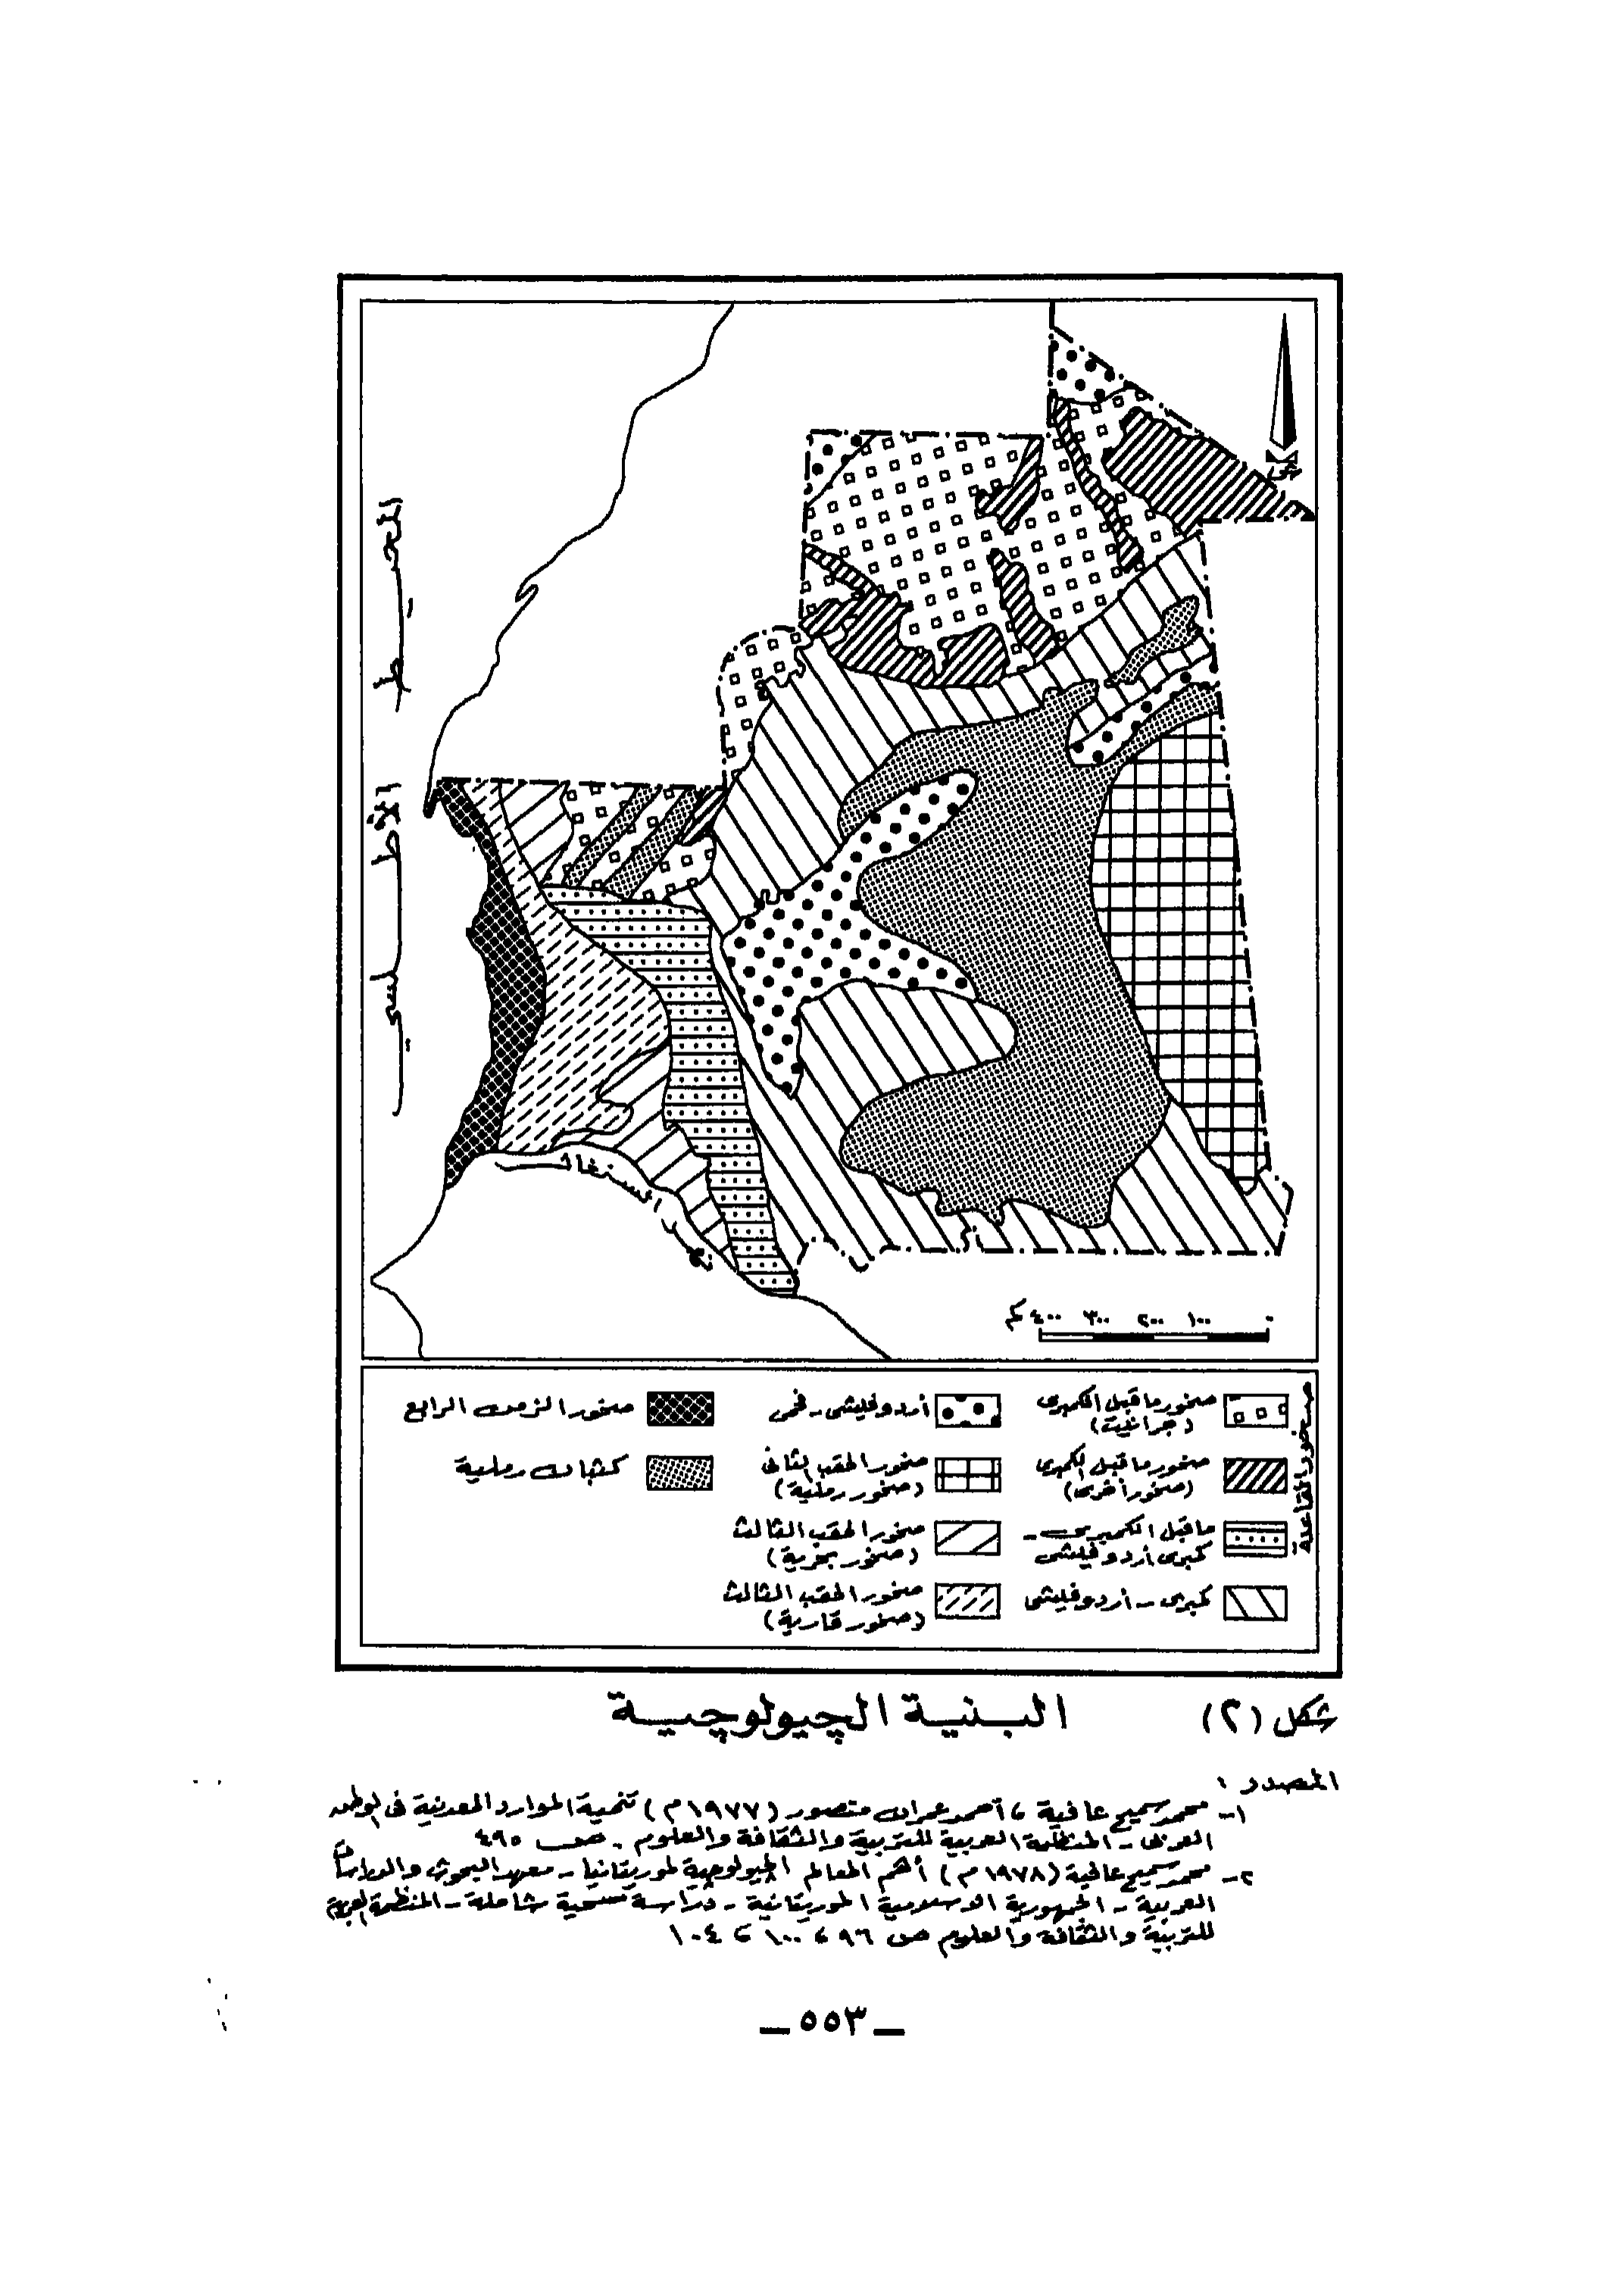 المحيط
الأطلسي
نهر السنغال
٤٠٠ كم ٣٠٠ ٢٠٠ ١٠٠ ٠
صخور القاعدة
صخور ما قبل الكمبرى
(جرانيت)
صخور ما قبل الكمبرى
(صخور أخرى)
ما قبل الكمبرى -
كمبرى أردوفيشى
كمبرى - أردوفيشى
أردوفيشى - فحمى
صخور الحقب الثانى
(صخور رملية)
صخور الحقب الثالث
(صخور بحرية)
صخور الحقب الثالث
(صخور قارية)
صخور الزمن الرابع
كثبان رملية
شكل (٢) البنية الچيولوچية
المصدر :
١- محمد سميح عافية ، أحمد عمران منصور (١٩٧٧م) تنمية الموارد المعدنية فى الوطن
العربى - المنظمة العربية للتربية والثقافة والعلوم - ص ٤٩٥
٢- محمد سميح عافية (١٩٧٨م) أهم المعالم الجيولوجية لموريتانيا - معهد البحوث والدراسات
العربية - الجمهورية الاسلامية الموريتانية - دراسة مسحية شاملة - المنظمة العربية
للتربية والثقافة والعلوم ص ٩٦ ، ١٠٠ ، ١٠٤
ـ ٥٥٣ ـ